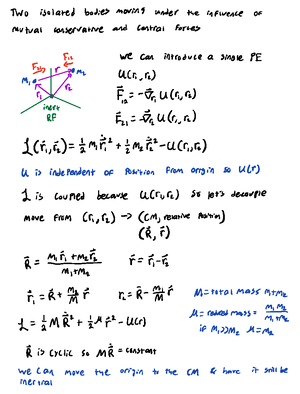 Two isolated bodies moving under the influence of
mutual conservative and central forces
F₂₁ r F₁₂
m₁ m₂
r₁ r₂
inert
RF
we can introduce a single PE
U(r₁,r₂)
F⃗₁₂ = -∇⃗₁ U(r₁,r₂)
F⃗₂₁ = -∇⃗₂ U(r₁,r₂)
ℒ(r⃗₁,r⃗₂) = 1/2 m₁ ṙ⃗₁² + 1/2 m₂ ṙ⃗₂² - U(r₁,r₂)
U is independent of position from origin so U(r)
ℒ is coupled because U(r₁,r₂) so let's decouple
move from (r₁,r₂) → (CM, relative position)
(R⃗, r⃗)
R⃗ = (m₁r⃗₁ + m₂r⃗₂)/(m₁+m₂) r⃗ = r⃗₁ - r⃗₂
r⃗₁ = R⃗ + m₂/M r⃗ r₂ = R⃗ - m₁/M r⃗
M = total mass m₁+m₂
μ = reduced mass = m₁m₂/(m₁+m₂)
if m₁>>m₂ μ = m₂
ℒ = 1/2 M Ṙ⃗² + 1/2 μ ṙ² - U(r)
R⃗ is cyclic so MṘ⃗ = constant
we can move the origin to the CM & have it still be
inertial